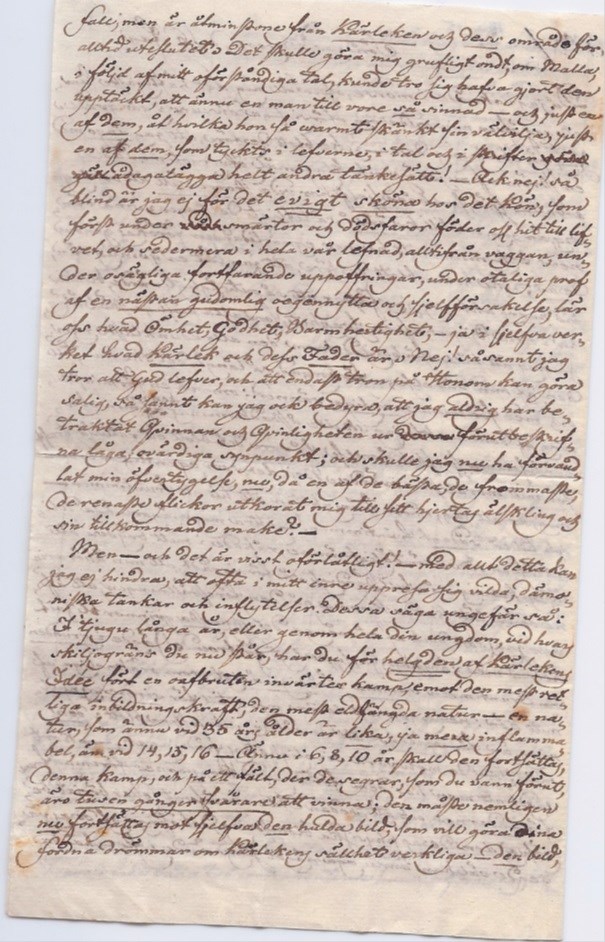 fall, men är åtminstone från Kärleken och dess område för
alltid uteslutet. Det skulle göra mig grufligt ondt, om Malla,
i följd af mitt oförståndiga tal, kunde tro sig hafva gjort den
upptäckt, att ännu en man till vore så sinnad — och just en
af dem, åt hvilka hon så varmt skänkt sin välvilja, just
en af dem, som tyckts i lefverne, i tal och i skrifter
ådagalägga helt andra tänkesätt! — Ack nej! så
blind är jag ej för det evigt sköna hos det kön, som
först under smärtor och dödsfaror föder oss hit till lif-
vet, och sedermera i hela vår lefnad, alltifrån vaggan, un-
der osägliga fortfarande uppoffringar, under otaliga prof
af en nästan gudomlig oegennytta och sjelfförsakelse, lär
oss hvad Ömhet, Godhet, Barmhertighet, — ja i sjelfva ver-
ket hvad Kärlek och dess Fader är. Nej! så sannt jag
tror att Gud lefver, och att endast tron på Honom kan göra
salig, så sannt kan jag ock bedyra, att jag aldrig har be-
traktat Qvinnan och Qvinligheten ur förutbeskrif-
na låga, ovärdiga synpunkt; och skulle jag nu ha förvand-
lat min öfvertygelse, nu, då en af de bästa, de frommaste,
de renaste flickor utkorat mig till sitt hjertas älskling och
sin tillkommande make? —
Men — och det är visst oförlåtligt! — med allt detta kan
jag ej hindra, att ofta i mitt inre uppresa sig vilda, dämo-
niska tankar och inflytelser. Dessa säga ungefär så:
I tjugu långa år, eller genom hela din ungdom, vid hvars
skiljogräns du nu står, har du för helgden af Kärlekens
Idee fört en oafbruten invärtes kamp emot den mest ret-
liga inbildningskraft, den mest eldfängda natur — en na-
tur, som ännu vid 35 års ålder är lika, ja mera inflamma-
bel, än vid 14, 15, 16 — Ännu i 6, 8, 10 år, skall den fortsättas,
denna kamp, och på ett fält, der de segrar, som du vann förut,
äro tusen gånger svårare att vinna; den måste nemligen
nu fortsättas mot sjelfva den hulda bild, som vill göra dina
fordna drömmar om Kärlekens sällhet verkliga — den bild,